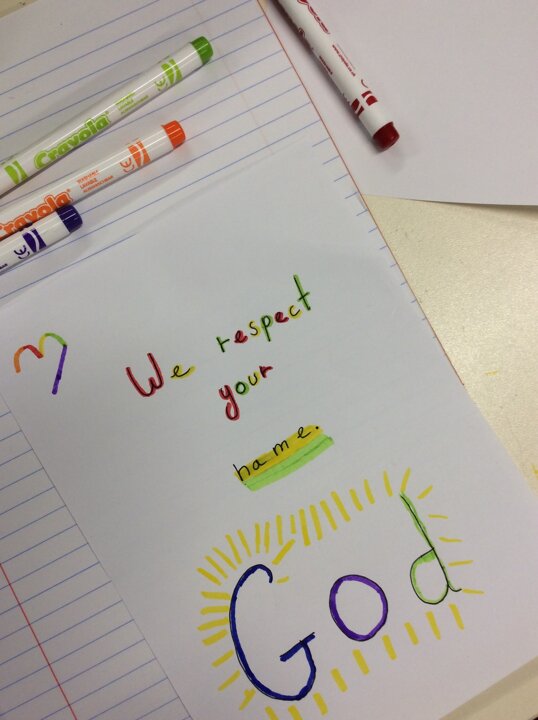 Crayola
Crayola
We respect
your
name.
God